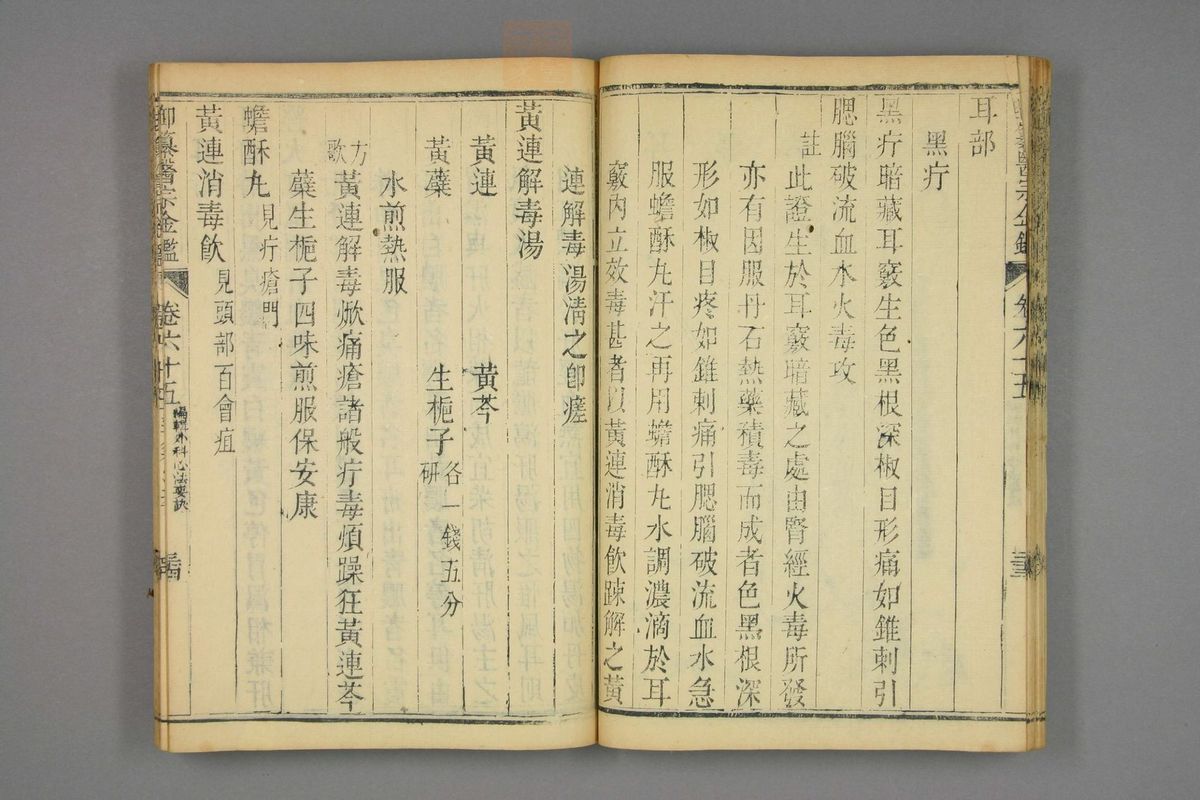 耳部
黑疔
黑疔暗藏耳竅生色黑根深椒目形痛如錐刺引
腮腦破流血水火毒攻
註 此證生於耳竅暗藏之處由腎經火毒所發
亦有因服丹石熱藥積毒而成者色黑根深
形如椒目疼如錐刺痛引腮腦破流血水急
服蟾酥丸汗之再用蟾酥丸水調濃滴於耳
竅內立效毒甚者以黃連消毒飲踈解之黃
連解毒湯清之卽瘥
黃連解毒湯
黃連 黃芩
黃蘗 生梔子研 各一錢五分
水煎熱服
方歌 黃連解毒焮痛瘡諸般疔毒煩躁狂黃連芩
蘗生梔子四味煎服保安康
蟾酥丸 見疔瘡門
黃連消毒飲 見頭部百會疽
御纂醫宗金鑑 卷六十五 編輯外科心法要訣